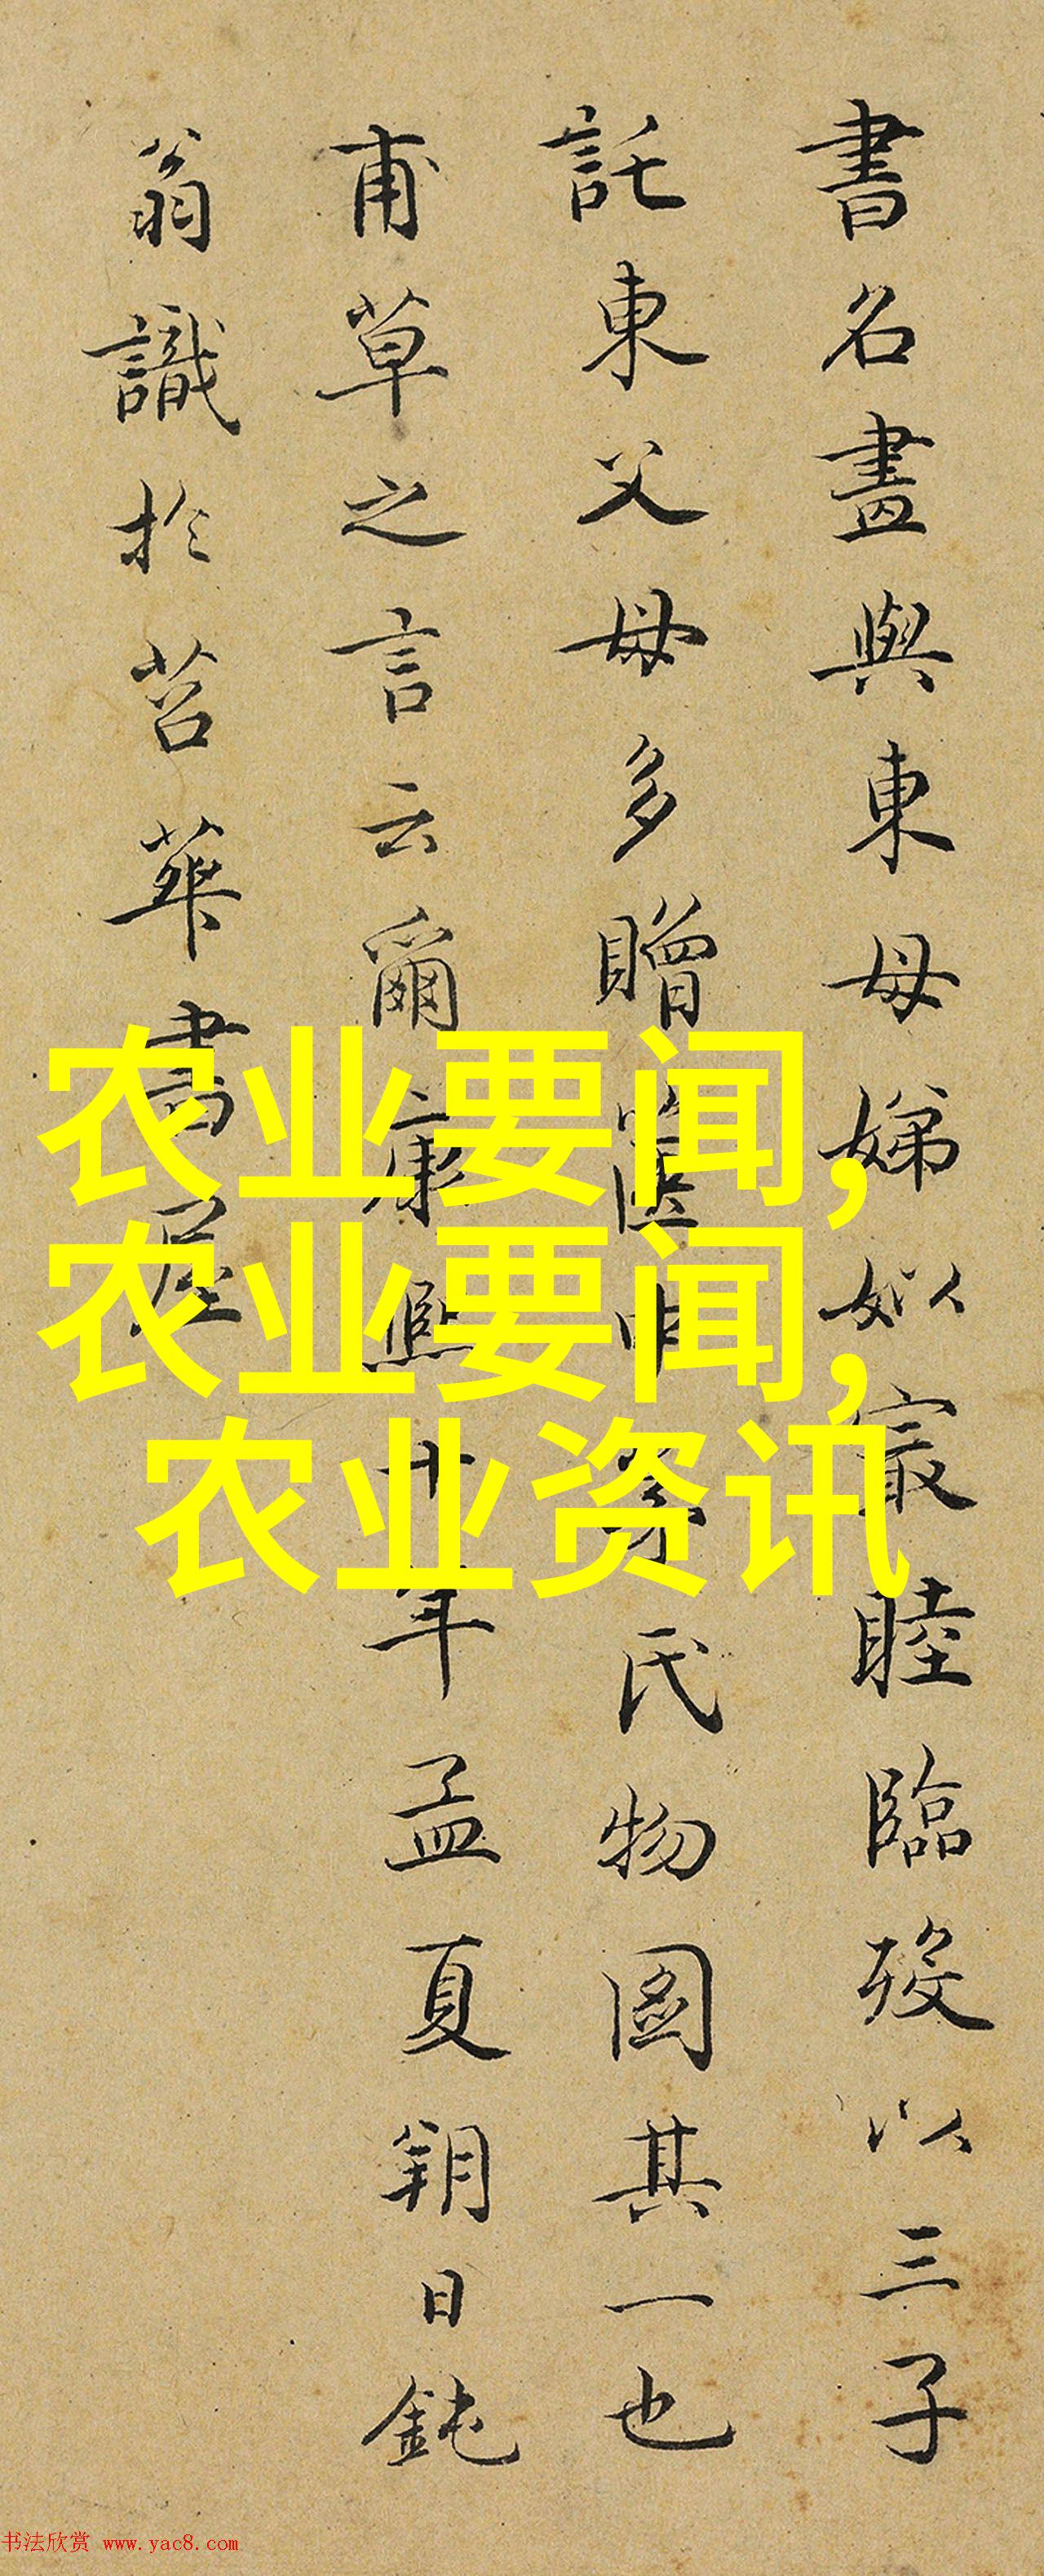 書名畫與東母娣姒寂睦臨歿以三子
託東父母多贈篋中氏物圖其一也
甫草之言云爾康熙十年孟夏朔日鈍
翁識於苕華書屋
农业要闻,
农业要闻,
农业资讯
书法欣赏 www.yac8.com